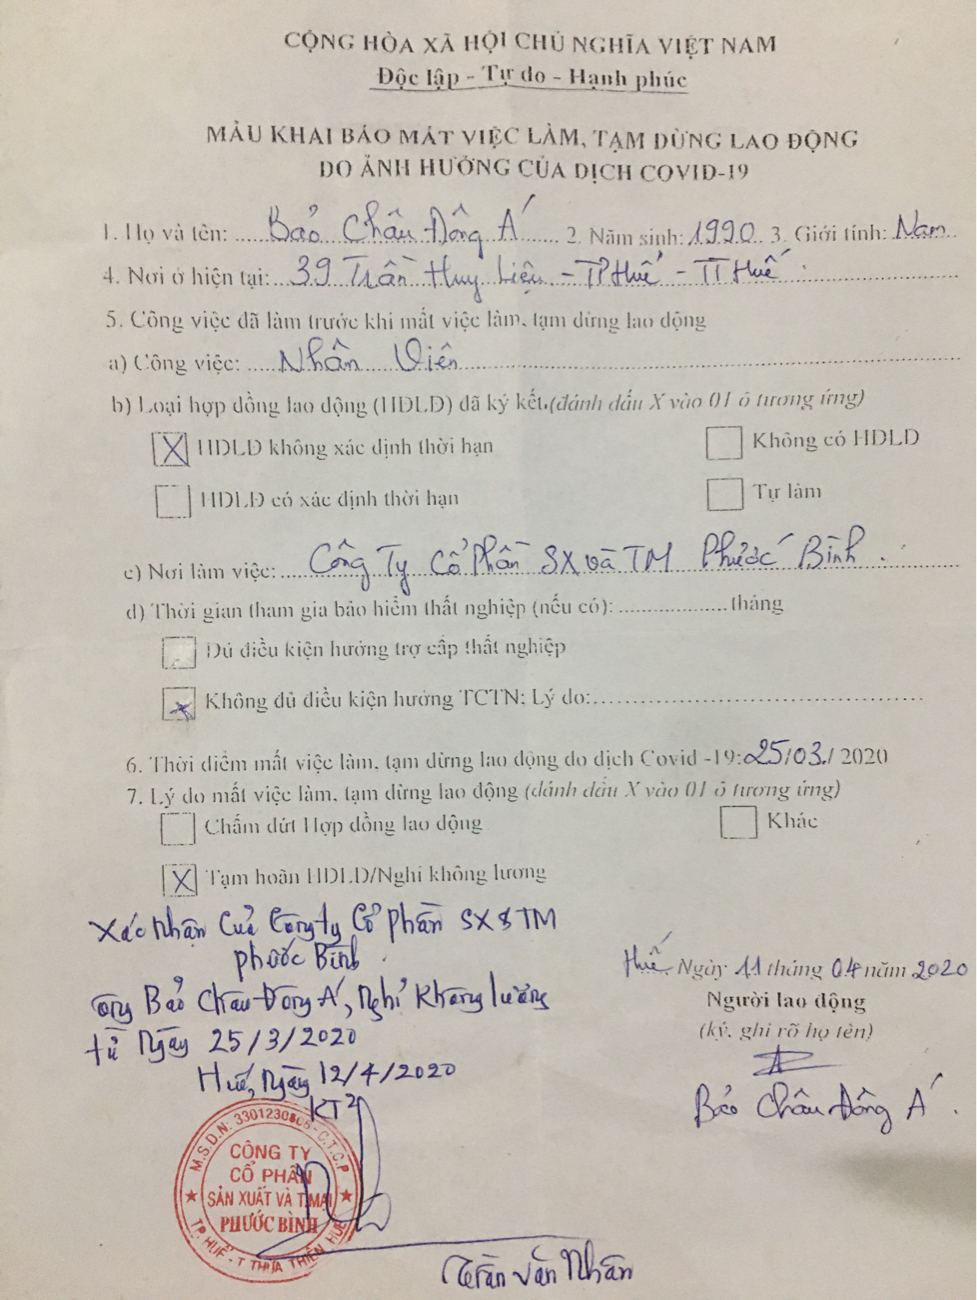 CỘNG HÒA XÃ HỘI CHỦ NGHĨA VIỆT NAM
Độc lập - Tự do - Hạnh phúc
MẪU KHAI BÁO MẤT VIỆC LÀM, TẠM DỪNG LAO ĐỘNG
DO ẢNH HƯỞNG CỦA DỊCH COVID-19
1. Họ và tên: Bảo Châu Đông Á 2. Năm sinh: 1990 3. Giới tính: Nam
4. Nơi ở hiện tại: 39 Trần Huy Liệu - TP Huế - TT Huế.
5. Công việc đã làm trước khi mất việc làm, tạm dừng lao động
a) Công việc: Nhân Viên
b) Loại hợp đồng lao động (HĐLĐ) đã ký kết (đánh dấu X vào 01 ô tương ứng)
X HĐLĐ không xác định thời hạn Không có HĐLĐ
HĐLĐ có xác định thời hạn Tự làm
c) Nơi làm việc: Công Ty Cổ Phần SX và TM Phước Bình.
d) Thời gian tham gia bảo hiểm thất nghiệp (nếu có): .................. tháng
Đủ điều kiện hưởng trợ cấp thất nghiệp
X Không đủ điều kiện hưởng TCTN; Lý do: ..................
6. Thời điểm mất việc làm, tạm dừng lao động do dịch Covid -19: 25/03/2020
7. Lý do mất việc làm, tạm dừng lao động (đánh dấu X vào 01 ô tương ứng)
Chấm dứt Hợp đồng lao động Khác
X Tạm hoãn HĐLĐ/Nghỉ không lương
Xác nhận Của Công ty Cổ phần SX & TM
phước Bình.
ông Bảo Châu Đông Á, Nghỉ không lương
từ ngày 25/3/2020
Huế, ngày 12/4/2020
Huế Ngày 11 tháng 04 năm 2020
Người lao động
(ký, ghi rõ họ tên)
Bảo Châu Đông Á.
M.S.D.N: 3301230806 - C.T.C.P
CÔNG TY
CỔ PHẦN
SẢN XUẤT VÀ T.MẠI
PHƯỚC BÌNH
TP. HUẾ - T THỪA THIÊN HUẾ
Trần Văn Nhân